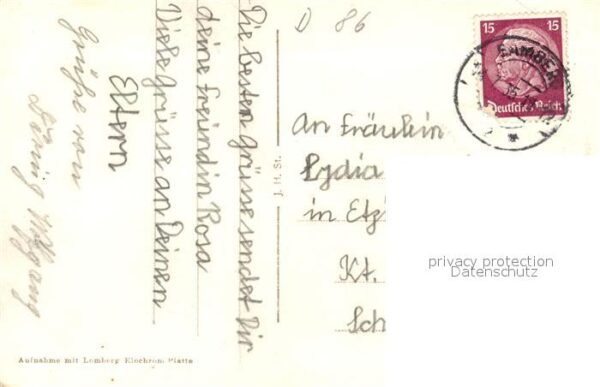 D 86
Die besten Grüsse sendet Dir
deine Freundin Rosa
Diese grüsse an Deinen
Eltern
Grüße von
Wolfgang
J. H. St.
15 15
Deutsches Reich
An Fräulein
Lydia
in Etz
Kt.
Sch
privacy protection
Datenschutz
Aufnahme mit Lomberg Elochrom Platte